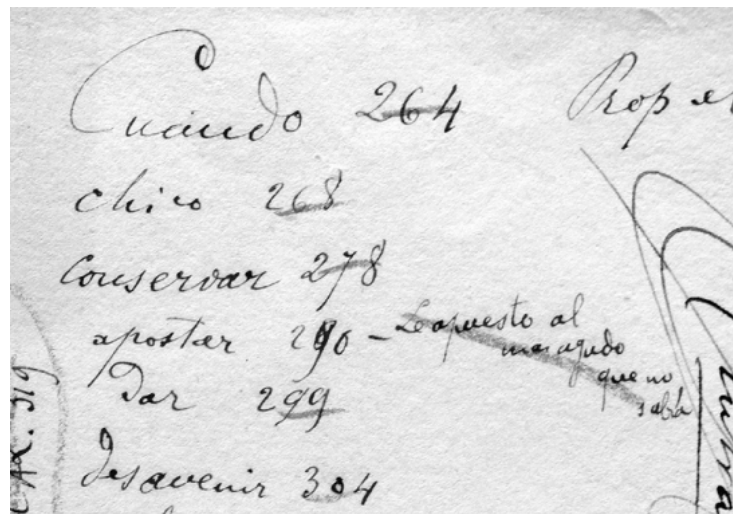 Cuando 264
chico 268
Conservar 278
apostar 290 - Le apuesto al
mas agudo
que no
sabía
Dar 299
Desavenir 304
Prop